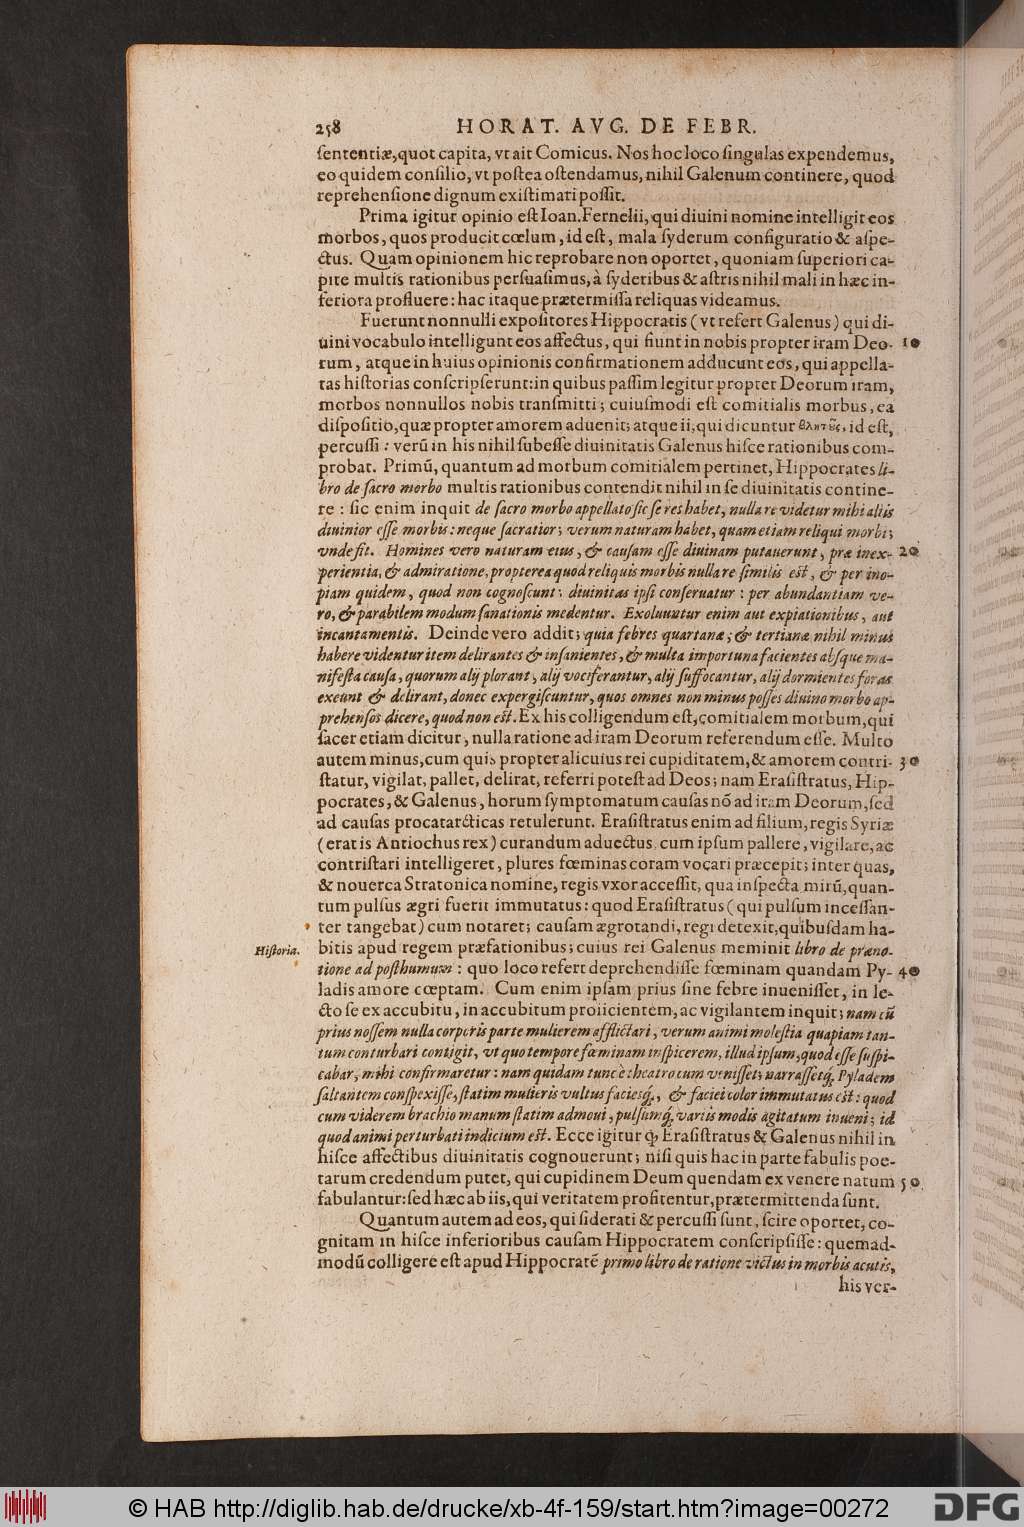 258 HORAT. AVG. DE FEBR.
ſententiæ, quot capita, vt ait Comicus. Nos hoc loco ſingulas expendemus,
eo quidem conſilio, vt poſtea oſtendamus, nihil Galenum continere, quod
reprehenſione dignum exiſtimari poſſit.
Prima igitur opinio eſt Ioan. Fernelii, qui diuini nomine intelligit eos
morbos, quos producit cœlum, id eſt, mala ſyderum configuratio & aſpe-
ctus. Quam opinionem hic reprobare non oportet, quoniam ſuperiori ca-
pite multis rationibus perſuaſimus, à ſyderibus & aſtris nihil mali in hæc in-
feriora profluere: hac itaque prætermiſſa reliquas videamus.
Fuerunt nonnulli expoſitores Hippocratis (vt refert Galenus) qui di-
uini vocabulo intelligunt eos affectus, qui fiunt in nobis propter iram Deo- 10
rum, atque in huius opinionis confirmationem adducunt eos, qui appella-
tas hiſtorias conſcripſerunt: in quibus paſſim legitur propter Deorum iram,
morbos nonnullos nobis tranſmitti; cuiuſmodi eſt comitialis morbus, ea
diſpoſitio, quæ propter amorem aduenit; atque ii, qui dicuntur βλητοὺς, id eſt,
percuſſi: verū in his nihil ſubeſſe diuinitatis Galenus hiſce rationibus com-
probat. Primū, quantum ad morbum comitialem pertinet, Hippocrates li-
bro de ſacro morbo multis rationibus contendit nihil in ſe diuinitatis contine-
re: ſic enim inquit de ſacro morbo appellato ſic ſe res habet, nulla re videtur mihi aliis
diuinior eſſe morbis: neque ſacratior; verum naturam habet, quam etiam reliqui morbi;
vnde fit. Homines vero naturam eius, & cauſam eſſe diuinam putauerunt, præ inex- 20
perientia, & admiratione, propterea quod reliquis morbis nulla re ſimilis eſt, & per ino-
piam quidem, quod non cognoſcunt; diuinitas ipſi conſeruatur: per abundantiam ve-
ro, & parabilem modum ſanationis medentur. Exoluuntur enim aut expiationibus, aut
incantamentis. Deinde vero addit; quia febres quartanæ; & tertianæ nihil minus
habere videntur item delirantes & inſanientes, & multa importuna facientes abſque ma-
nifeſta cauſa, quorum alij plorant, alij vociferantur, alij ſuffocantur, alij dormientes foras
exeunt & delirant, donec expergiſcuntur, quos omnes non minus poſſes diuino morbo ap-
prehenſos dicere, quod non eſt. Ex his colligendum eſt, comitialem morbum, qui
ſacer etiam dicitur, nulla ratione ad iram Deorum referendum eſſe. Multo
autem minus, cum quis propter alicuius rei cupiditatem, & amorem contri- 30
ſtatur, vigilat, pallet, delirat, referri poteſt ad Deos; nam Eraſiſtratus, Hip-
pocrates, & Galenus, horum ſymptomatum cauſas nō ad iram Deorum, ſed
ad cauſas procatarcticas retulerunt. Eraſiſtratus enim ad filium, regis Syriæ
(erat is Antiochus rex) curandum aduectus, cum ipſum pallere, vigilare, ac
contriſtari intelligeret, plures fœminas coram vocari præcepit; inter quas,
& nouerca Stratonica nomine, regis vxor acceſſit, qua inſpecta mirū, quan-
tum pulſus ægri fuerit immutatus: quod Eraſiſtratus (qui pulſum inceſſan-
ter tangebat) cum notaret; cauſam ægrotandi, regi detexit, quibuſdam ha-
Hiſtoria. bitis apud regem præfationibus; cuius rei Galenus meminit libro de præno-
tione ad poſthumum: quo loco refert deprehendiſſe fœminam quandam Py- 40
ladis amore cœptam. Cum enim ipſam prius ſine febre inueniſſet, in le-
cto ſe ex accubitu, in accubitum proiicientem, ac vigilantem inquit; nam cū
prius noſſem nulla corporis parte mulierem afflictari, verum animi moleſtia quapiam tan-
tum conturbari contigit, vt quo tempore fœminam inſpicerem, illud ipſum, quod eſſe ſuſpi-
cabar, mihi confirmaretur: nam quidam tunc è theatro cum veniſſet; narraſſetq́; Pyladem
ſaltantem conſpexiſſe, ſtatim mulieris vultus facieſq́;, & faciei color immutatus eſt: quod
cum viderem brachio manum ſtatim admoui, pulſumq́; variis modis agitatum inueni; id
quod animi perturbati indicium eſt. Ecce igitur ꝙ Eraſiſtratus & Galenus nihil in
hiſce affectibus diuinitatis cognouerunt; niſi quis hac in parte fabulis poe-
tarum credendum putet, qui cupidinem Deum quendam ex venere natum 50
fabulantur: ſed hæc ab iis, qui veritatem profitentur, prætermittenda ſunt.
Quantum autem ad eos, qui ſiderati & percuſſi ſunt, ſcire oportet, co-
gnitam in hiſce inferioribus cauſam Hippocratem conſcripſiſſe: quemad-
modū colligere eſt apud Hippocratē primo libro de ratione victus in morbis acutis,
his ver-
© HAB http://diglib.hab.de/drucke/xb-4f-159/start.htm?image=00272
DFG